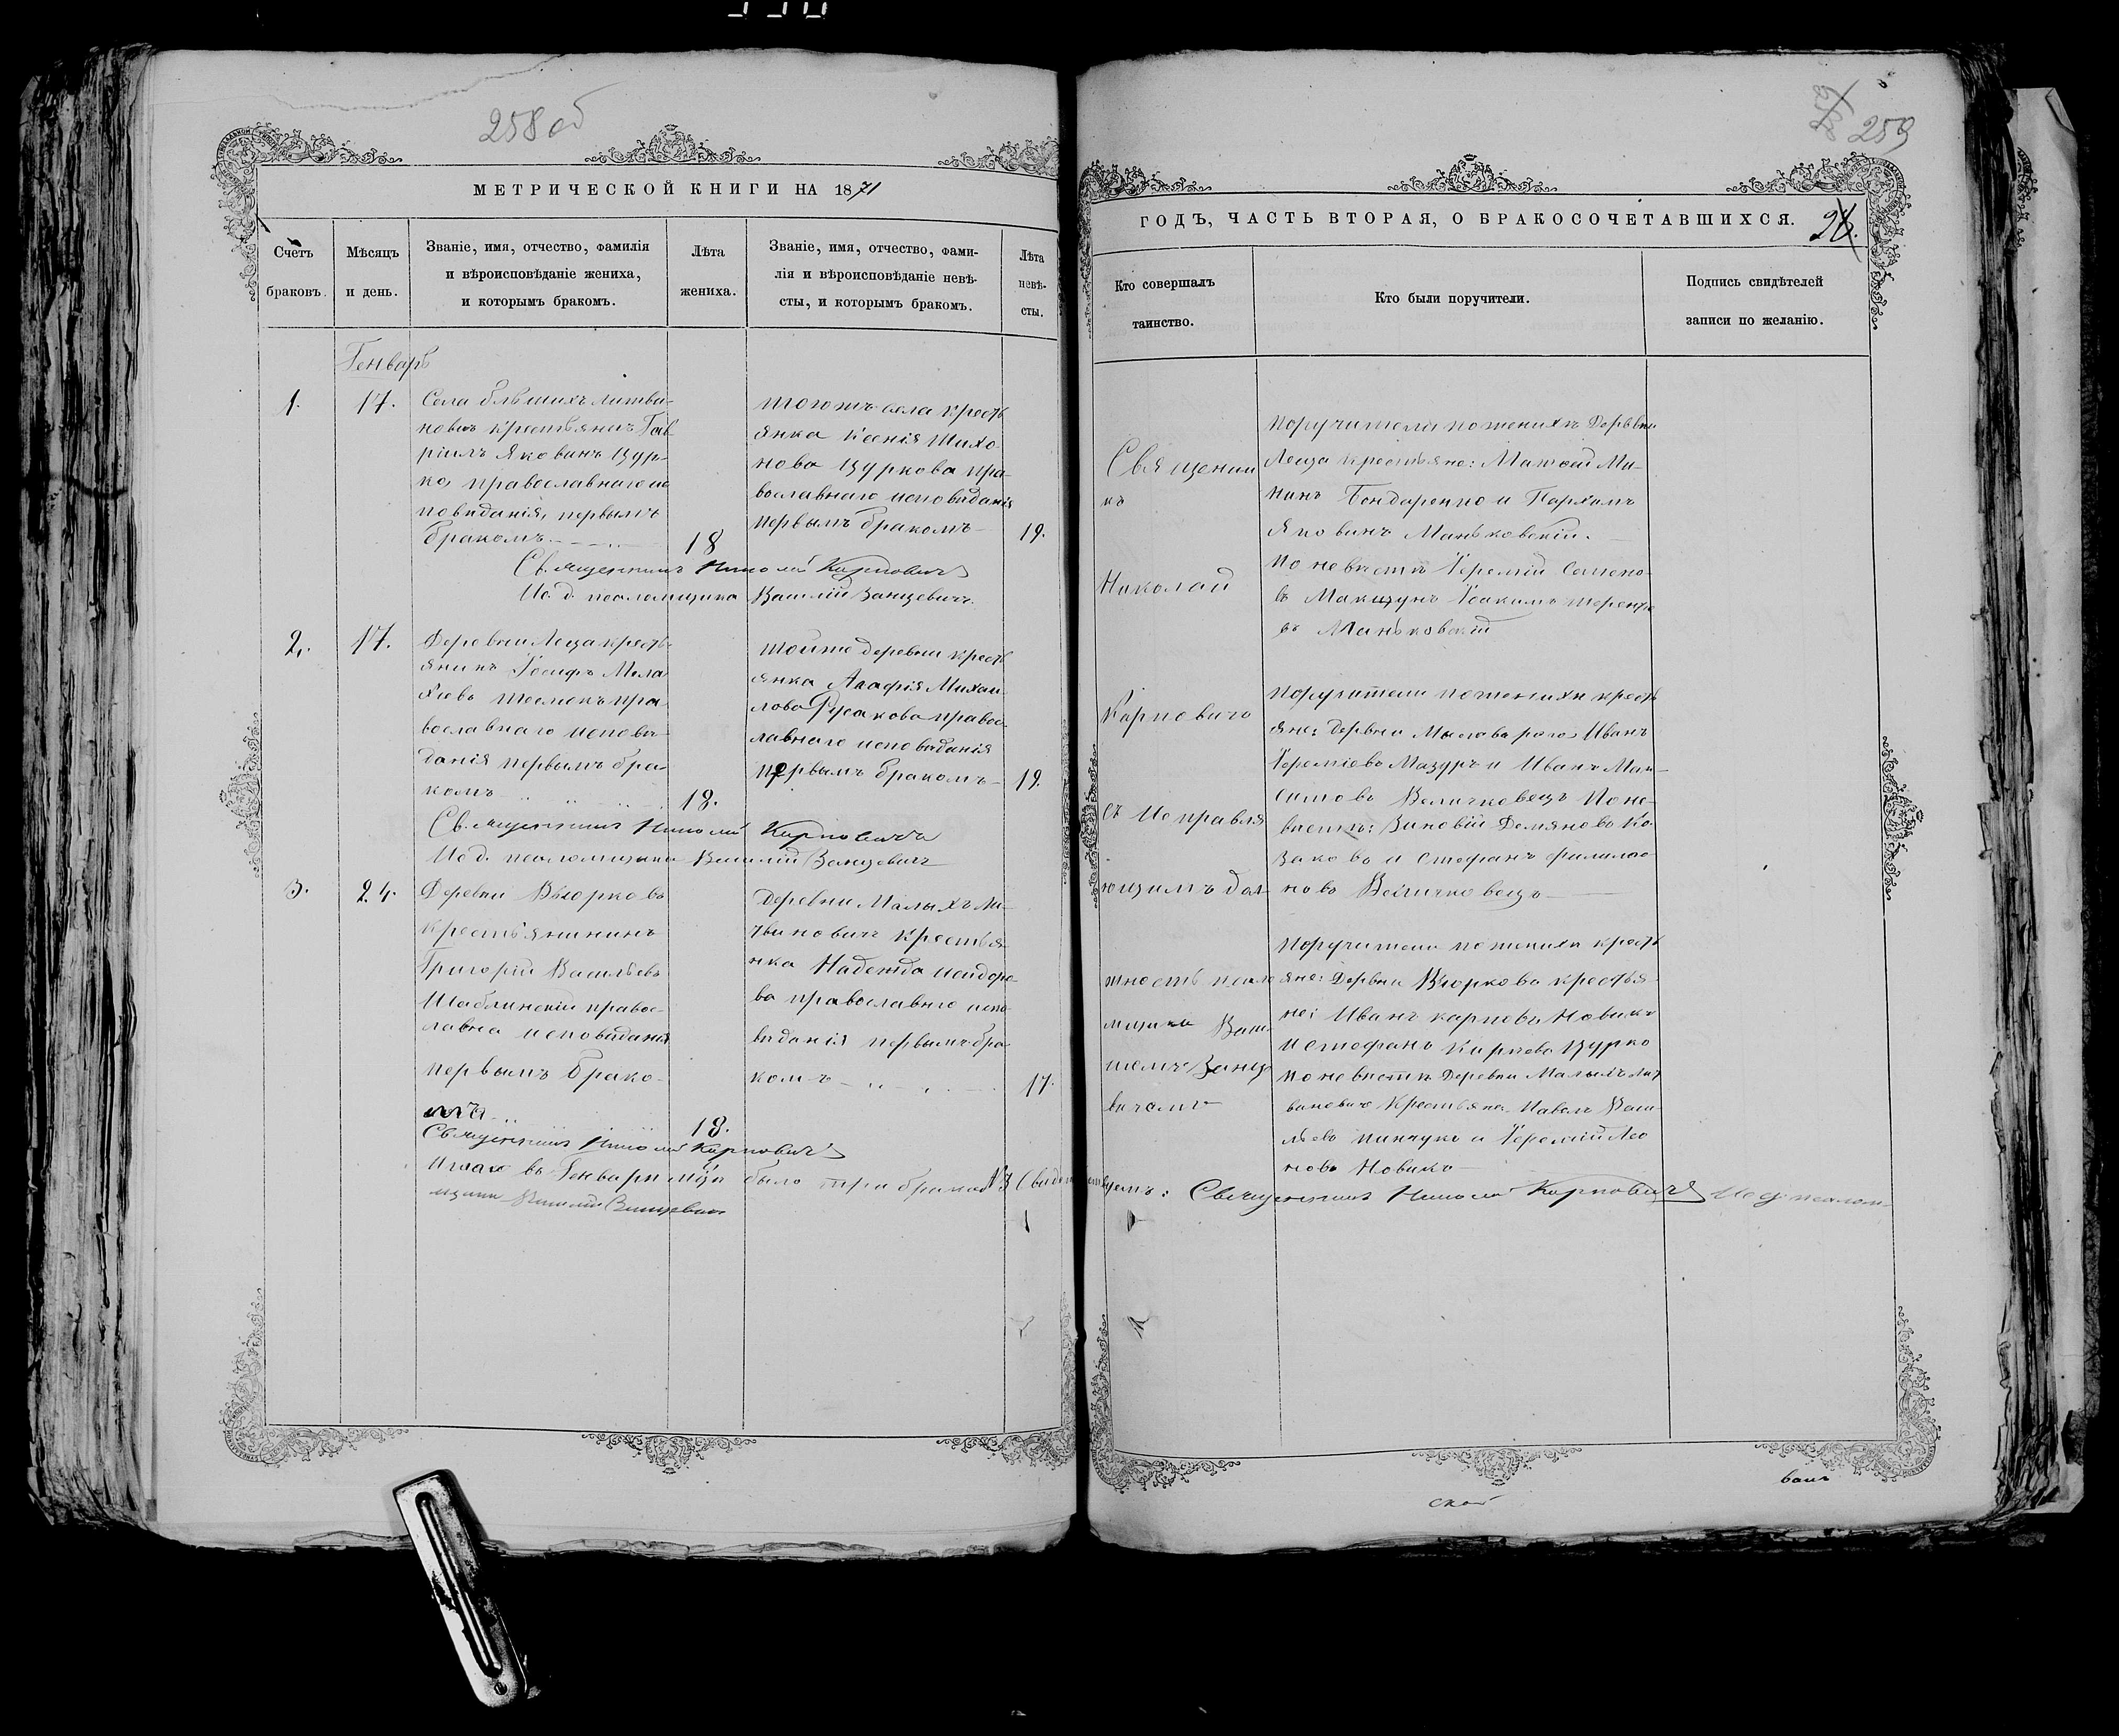 258 об
МЕТРИЧЕСКОЙ КНИГИ НА 1871
Счетъ
браковъ.
Мѣсяцъ
и день.
Званіе, имя, отчество, фамилія
и вѣроисповѣданіе жениха,
и которымъ бракомъ.
Лѣта
жениха.
Званіе, имя, отчество, фами-
лія и вѣроисповѣданіе невѣ-
сты, и которымъ бракомъ.
Лѣта
невѣ-
сты.
Генварь
1.
17.
Села
новичъ крестьянинъ Гав
ріилъ Яковинъ Цур-
ко, православнаго ис
повѣданія, первымъ
бракомъ
18
тогожъ села кресть
янка Ксенія Тихо
нова Цуркова пра-
вославнаго исповѣданія
первымъ бракомъ
19.
Священникъ Николай Карповичъ
Ис. д. псаломщика Василій
2.
17.
Деревни Леца кресть-
янинъ Іосифъ
пра
вославнаго исповѣ-
данія первымъ бра-
комъ
18.
тойже деревни кресть
янка Агафія Михаи
лова Русакова правос-
лавнаго исповѣданія
первымъ бракомъ
19.
Священникъ Николай Карповичъ
Ис. д. псаломщика Василій
3.
24.
Деревни Вьюрковъ
крестьянининъ
Григорій Васильевъ
Шаблинскій правос-
лавна исповѣданія
первымъ брако-
мъ
18.
деревни Малыхъ Ли-
твиновичъ крестья
нка Надежда Исидоро-
ва православнго испо
вѣданія первымъ бра
комъ
17.
Священникъ Николай Карповичъ
Итого въ Генварѣ м-цѣ было три брака №3
мщика Василій
259
ГОДЪ, ЧАСТЬ ВТОРАЯ, О БРАКОСОЧЕТАВШИХСЯ.
Кто совершалъ
таинство.
Кто были поручители.
Подпись свидѣтелей
записи по желанію.
Священни
къ
Николай
Карповичъ
съ исправля
ющимъ дол
жность псало
мщика Васи
вичомъ
поручители по женихѣ Деревни
Леца крестьяне: Матвей Ми-
нинъ Бондаренко и Пархомъ
Яковинъ Маньковскій.
по невѣстѣ Іеремій Семено-
въ Іоакимъ Терентье
въ Маньковскій
поручители по женихѣ кресть
яне: деревни Иванъ
Іереміевъ Мазуръ и Иванъ Мак-
симовъ Величковецъ По не-
вѣстѣ: Зиновій Демяновъ Ко-
заковъ и Стефанъ Филимо-
новъ Величковецъ
поручители по женихѣ кресть
яне: Деревни Вьюркова крестья
не: Иванъ Карповъ Новикъ
и Стефанъ Карповъ Цурко
по невѣстѣ Деревни Малыхъ Лит
виновичъ Крестьяне Павелъ Васи
льевъ Пинчукъ и Іеремій Лео
новъ Новикъ
Священникъ Николай Карповичъ Ис д псалом-
ской
ванъ